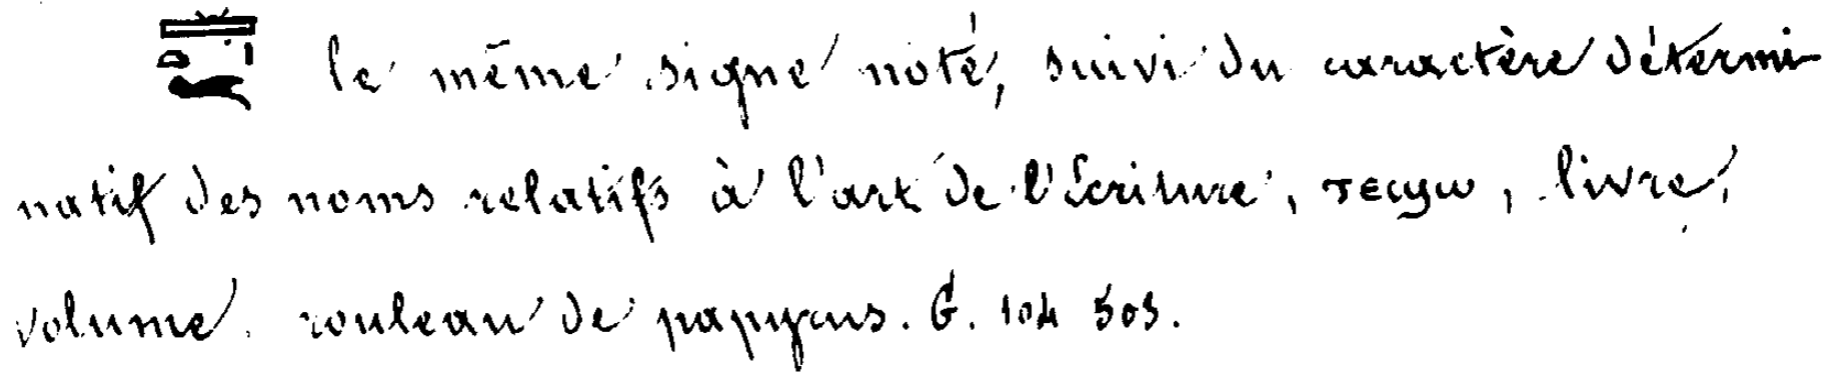 le même signe noté, suivi du caractère détermi-
natif des noms relatifs à l'art de l'Écriture, ⲧⲉϫⲱ, livre,
volume. rouleau de papyrus. G. 104 505.